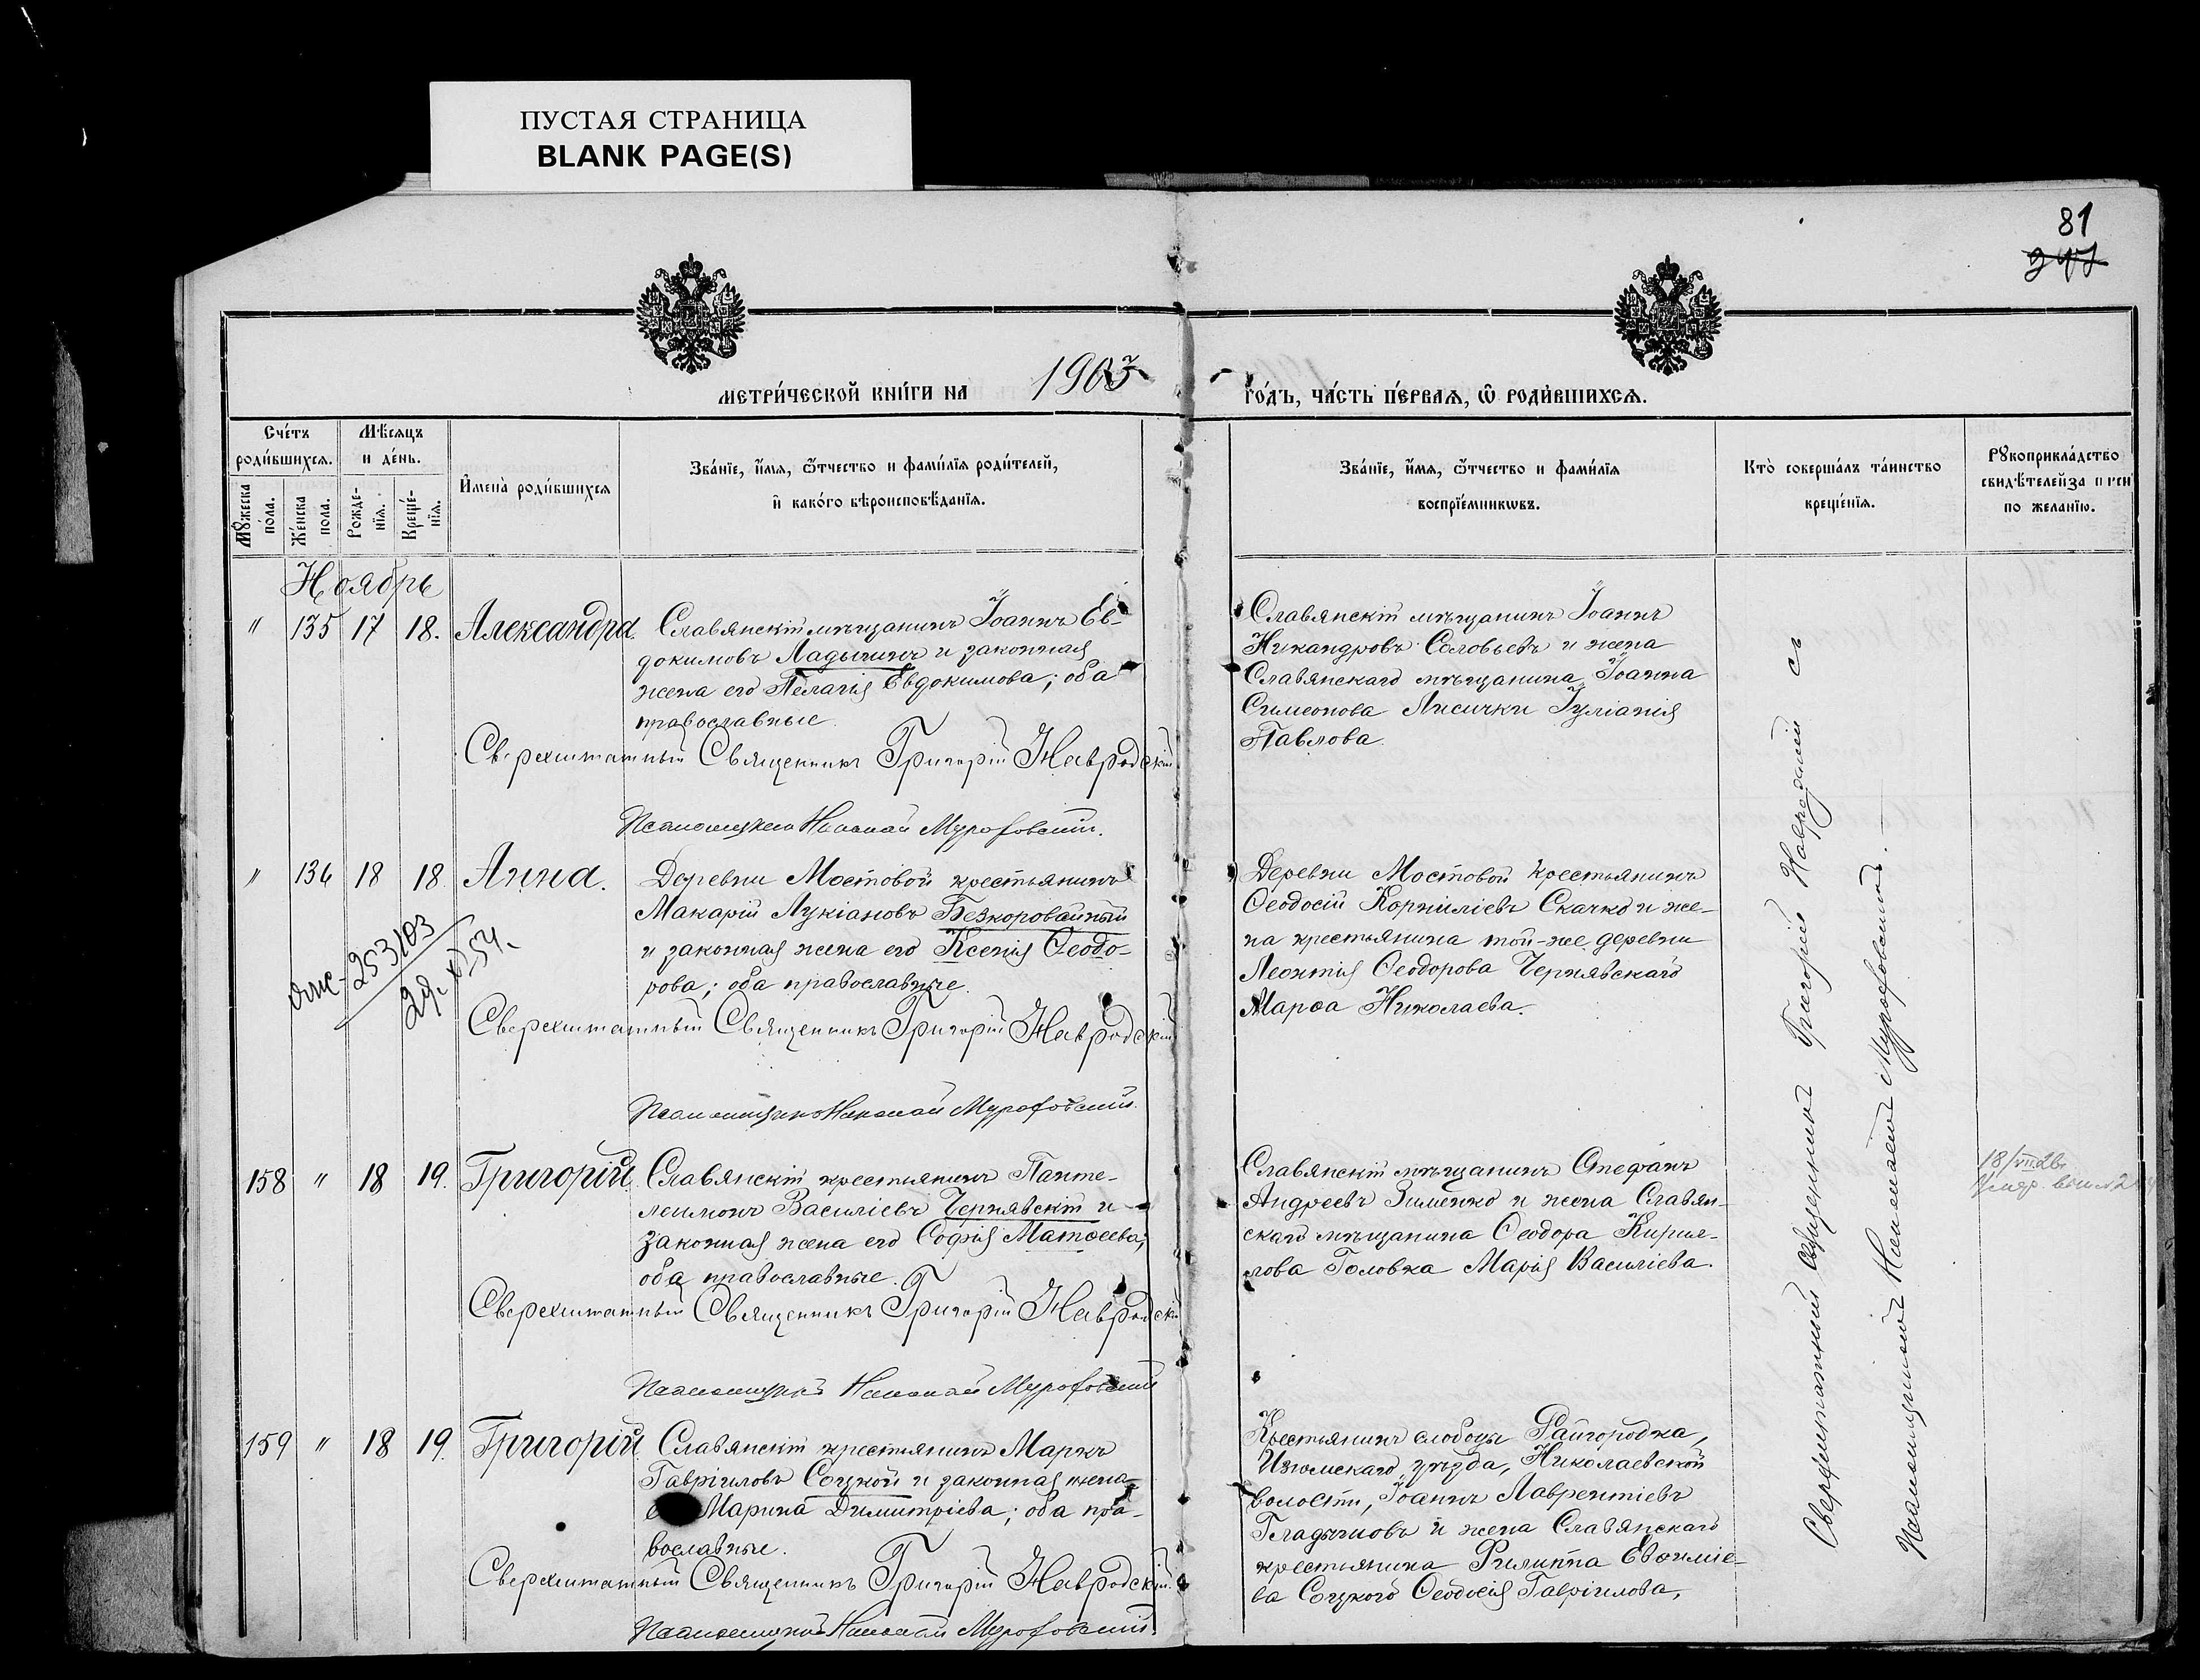 ПУСТАЯ СТРАНИЦА
BLANK PAGE(S)
81
МЕТРИ́ЧЕСКОЙ КНИ́ГИ НА 1903
ГО́ДЪ, ЧА́СТЬ ПЕ́РВАѦ, Ѿ РОДИ́ВШИХСѦ.
Сче́тъ роди́вшихся.
Мѣ́сяцъ и де́нь.
Мꙋ́жеска по́ла.
Же́нска пола.
Рожде́нїя.
Креще́нїя.
И҆мена̀ роди́вшихся
Зва́нїе, и҆́мя, ѻ҆́тчество и фами́лїя роди́телей,
и҆ како́го вѣроисповѣ́данїя.
Зва́нїе, и҆́мя, ѻ҆́тчество и фами́лїя
воспрїе́мникωвъ.
Кто̀ соверша́лъ та́инство
креще́нїя.
Рꙋкоприкла́дство
свидѣ́телей за
по жела́нїю.
Ноябрь
" 135 17 18. Александра. Славянскій мѣщанинъ Іоаннъ Ев-
докимовъ Ладыгинъ и законная
жена его Пелагія Евдокимова; оба
православные.
Сверхштатный Священникъ Григорій Навродскій
Псаломщикъ Николай Мурофовскій.
Славянскій мѣщанинъ Іоаннъ
Никандровъ Соловьевъ и жена
Славянскаго мѣщанина Іоанна
Симеонова Лисички Іуліанія
Павлова.
" 136 18 18 Анна. Деревни Мостовой крестьянинъ
Макарій Лукіановъ Безкоровайный
и законная жена его Ксенія Ѳеодо-
рова; оба православные.
253103
Сверхштатный Священникъ Григорій Навродскій
Псаломщикъ Николай Мурофовскій.
Деревни Мостовой крестьянинъ
Ѳеодосій Корниліевъ Скачко и же-
на крестьянина той-же деревни
Леонтія Ѳеодорова Чернявскаго
Марѳа Николаева.
158 " 18 19. Григорій. Славянскій крестьянинъ Панте-
леимонъ Василіевъ Чернявскій и
законная жена его Софія Матѳеева;
оба православные.
Сверхштатный Священникъ Григорій Навродскій
Псаломщикъ Николай Мурофовскій
Славянскій мѣщанинъ Стефанъ
Андреевъ Зименко и жена Славян-
скаго мѣщанина Ѳеодора Кирил-
лова Головка Марія Василіева.
159 " 18 19. Григорій. Славянскій крестьянинъ Маркъ
Гавріиловъ Соцкой и законная жена
Марина Димитріева; оба пра-
вославные.
Сверхштатный Священникъ Григорій Навродскій.
Псаломщикъ Николай Мурофовскій.
Крестьянинъ слободы Райгородка,
Изюмскаго уѣзда, Николаевской
волости, Іоаннъ Лаврентіевъ
Гладчиовъ и жена Славянскаго
крестьянина Филиппа Евѳиміе-
ва Соцкого Ѳеодосія Гавріилова,
Сверхштатный священникъ Григорій Навродскій съ
Псаломщикомъ Николаемъ Мурофовскимъ.